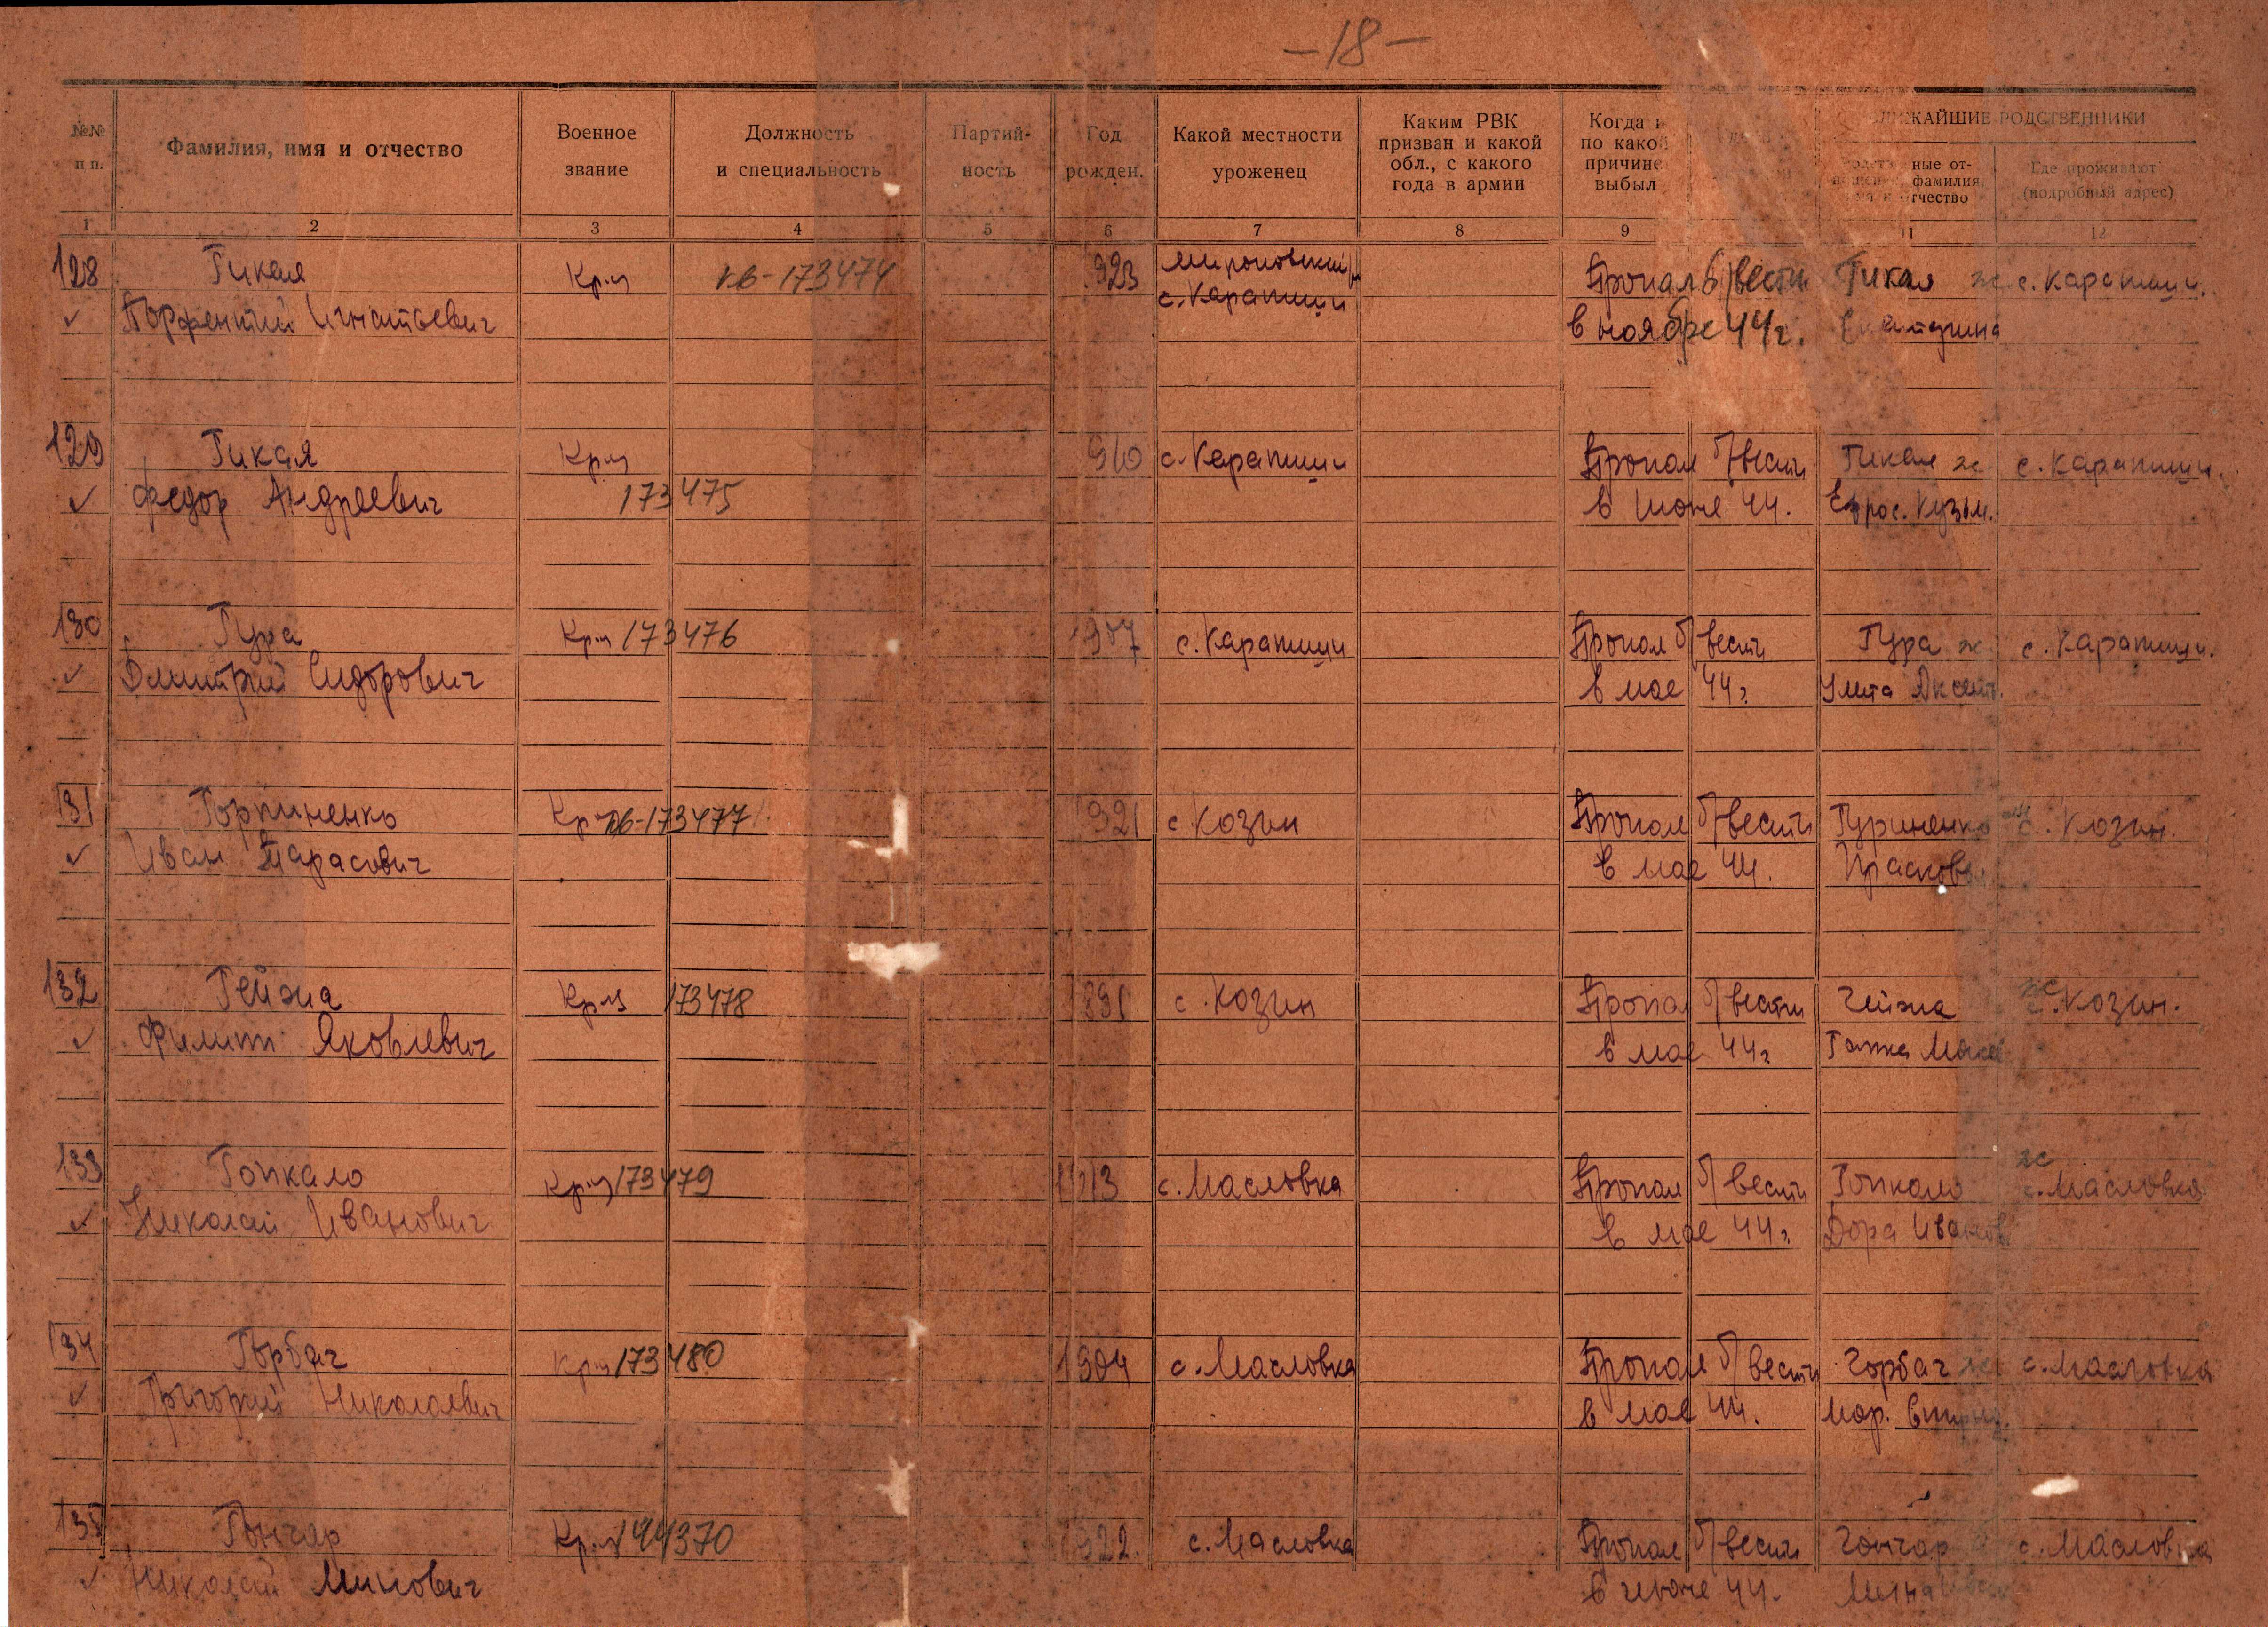 -18-
№№ п п.
Фамилия, имя и отчество
Военное звание
Должность и специальность
Партий-ность
Год рожден.
Какой местности уроженец
Каким РВК призван и какой обл., с какого года в армии
Когда и по какой причине выбыл
БЛИЖАЙШИЕ РОДСТВЕННИКИ
ные от- фамилия отчество
Где проживают (подробный адрес)
1 2 3 4 5 6 7 8 9 11 12
128 Гикая Кр-ц 173474 923 Мироновский с. Карапиши Пропал б/вести Гикая ж с. Карапиши.
Порфентий Игнатьевич в ноябре 44г. Екатерина
129 Гикая Кр-ц 910 с. Карапиши Пропал б/вести Гикая ж с. Карапиши.
Федор Андреевич 173475 в июне 44. Ефрос. Кузьм.
130 Гура Кр-ц 173476 1907 с. Карапиши Пропал б/вести Гура ж с. Карапиши.
Дмитрий Сидорович в мае 44г. Улита Аксент.
131 Кр-ц 173477 1921 с Козин Пропал б/вести Гуриненко с. Козин.
Иван Тарасович в мае 44. Прасковья
132 Гейжа Кр-ц 173478 1891 с. Козин Пропал б/вести Гейжа ж с. Козин.
Филипп Яковлевич в мае 44г Гапка
133 Гопкало Кр-ц 173479 1913 с. Масловка Пропал б/вести Гопкало ж с. Масловка
Николай Иванович в мае 44г. Дора Иванов
134 Горбач Кр-ц 173480 1904 с. Масловка Пропал б/вести Горбач ж с. Масловка
Григорий Николаевич в мае 44. Мар.
135 Гончар Кр-ц 144370 922. с. Масловка Пропал б/вести Гончар с. Масловка
Николай Минович в июне 44. Мина